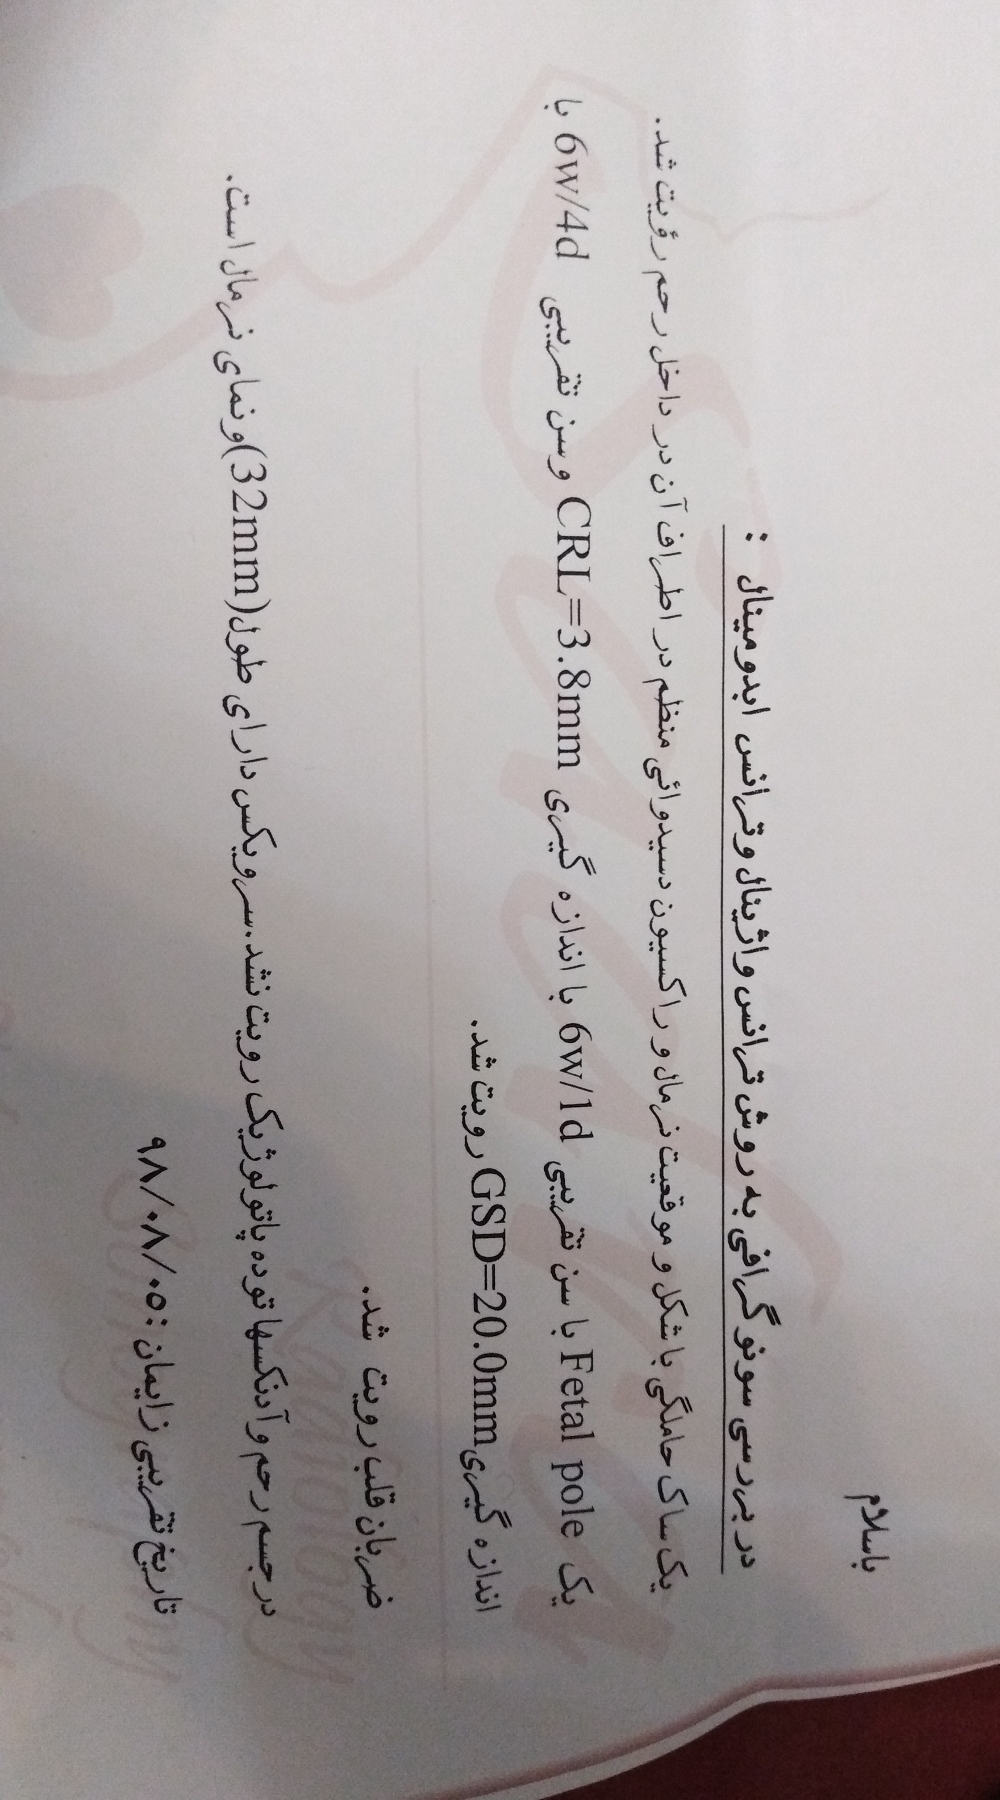 باسلام
در بررسی سونوگرافی به روش ترانس واژینال و ترانس ابدومینال :
یک ساک حاملگی با شکل و موقعیت نرمال و راکسیون دسیدوائی منظم در اطراف آن در داخل رحم رؤیت شد.
یک Fetal pole با سن تقریبی 6w/1d با اندازه گیری CRL=3.8mm وسن تقریبی 6w/4d با
اندازه گیری GSD=20.0mm رویت شد.
ضربان قلب رویت شد.
در جسم رحم و آدنکسها توده پاتولوژیک رویت نشد.سرویکس دارای طول(32mm)و نمای نرمال است.
تاریخ تقریبی زایمان :۹۸/۰۸/۰۵